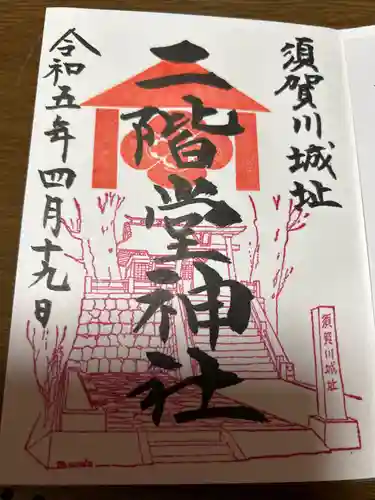 須賀川城址
二階堂神社
令和五年四月十九日
須賀川城址